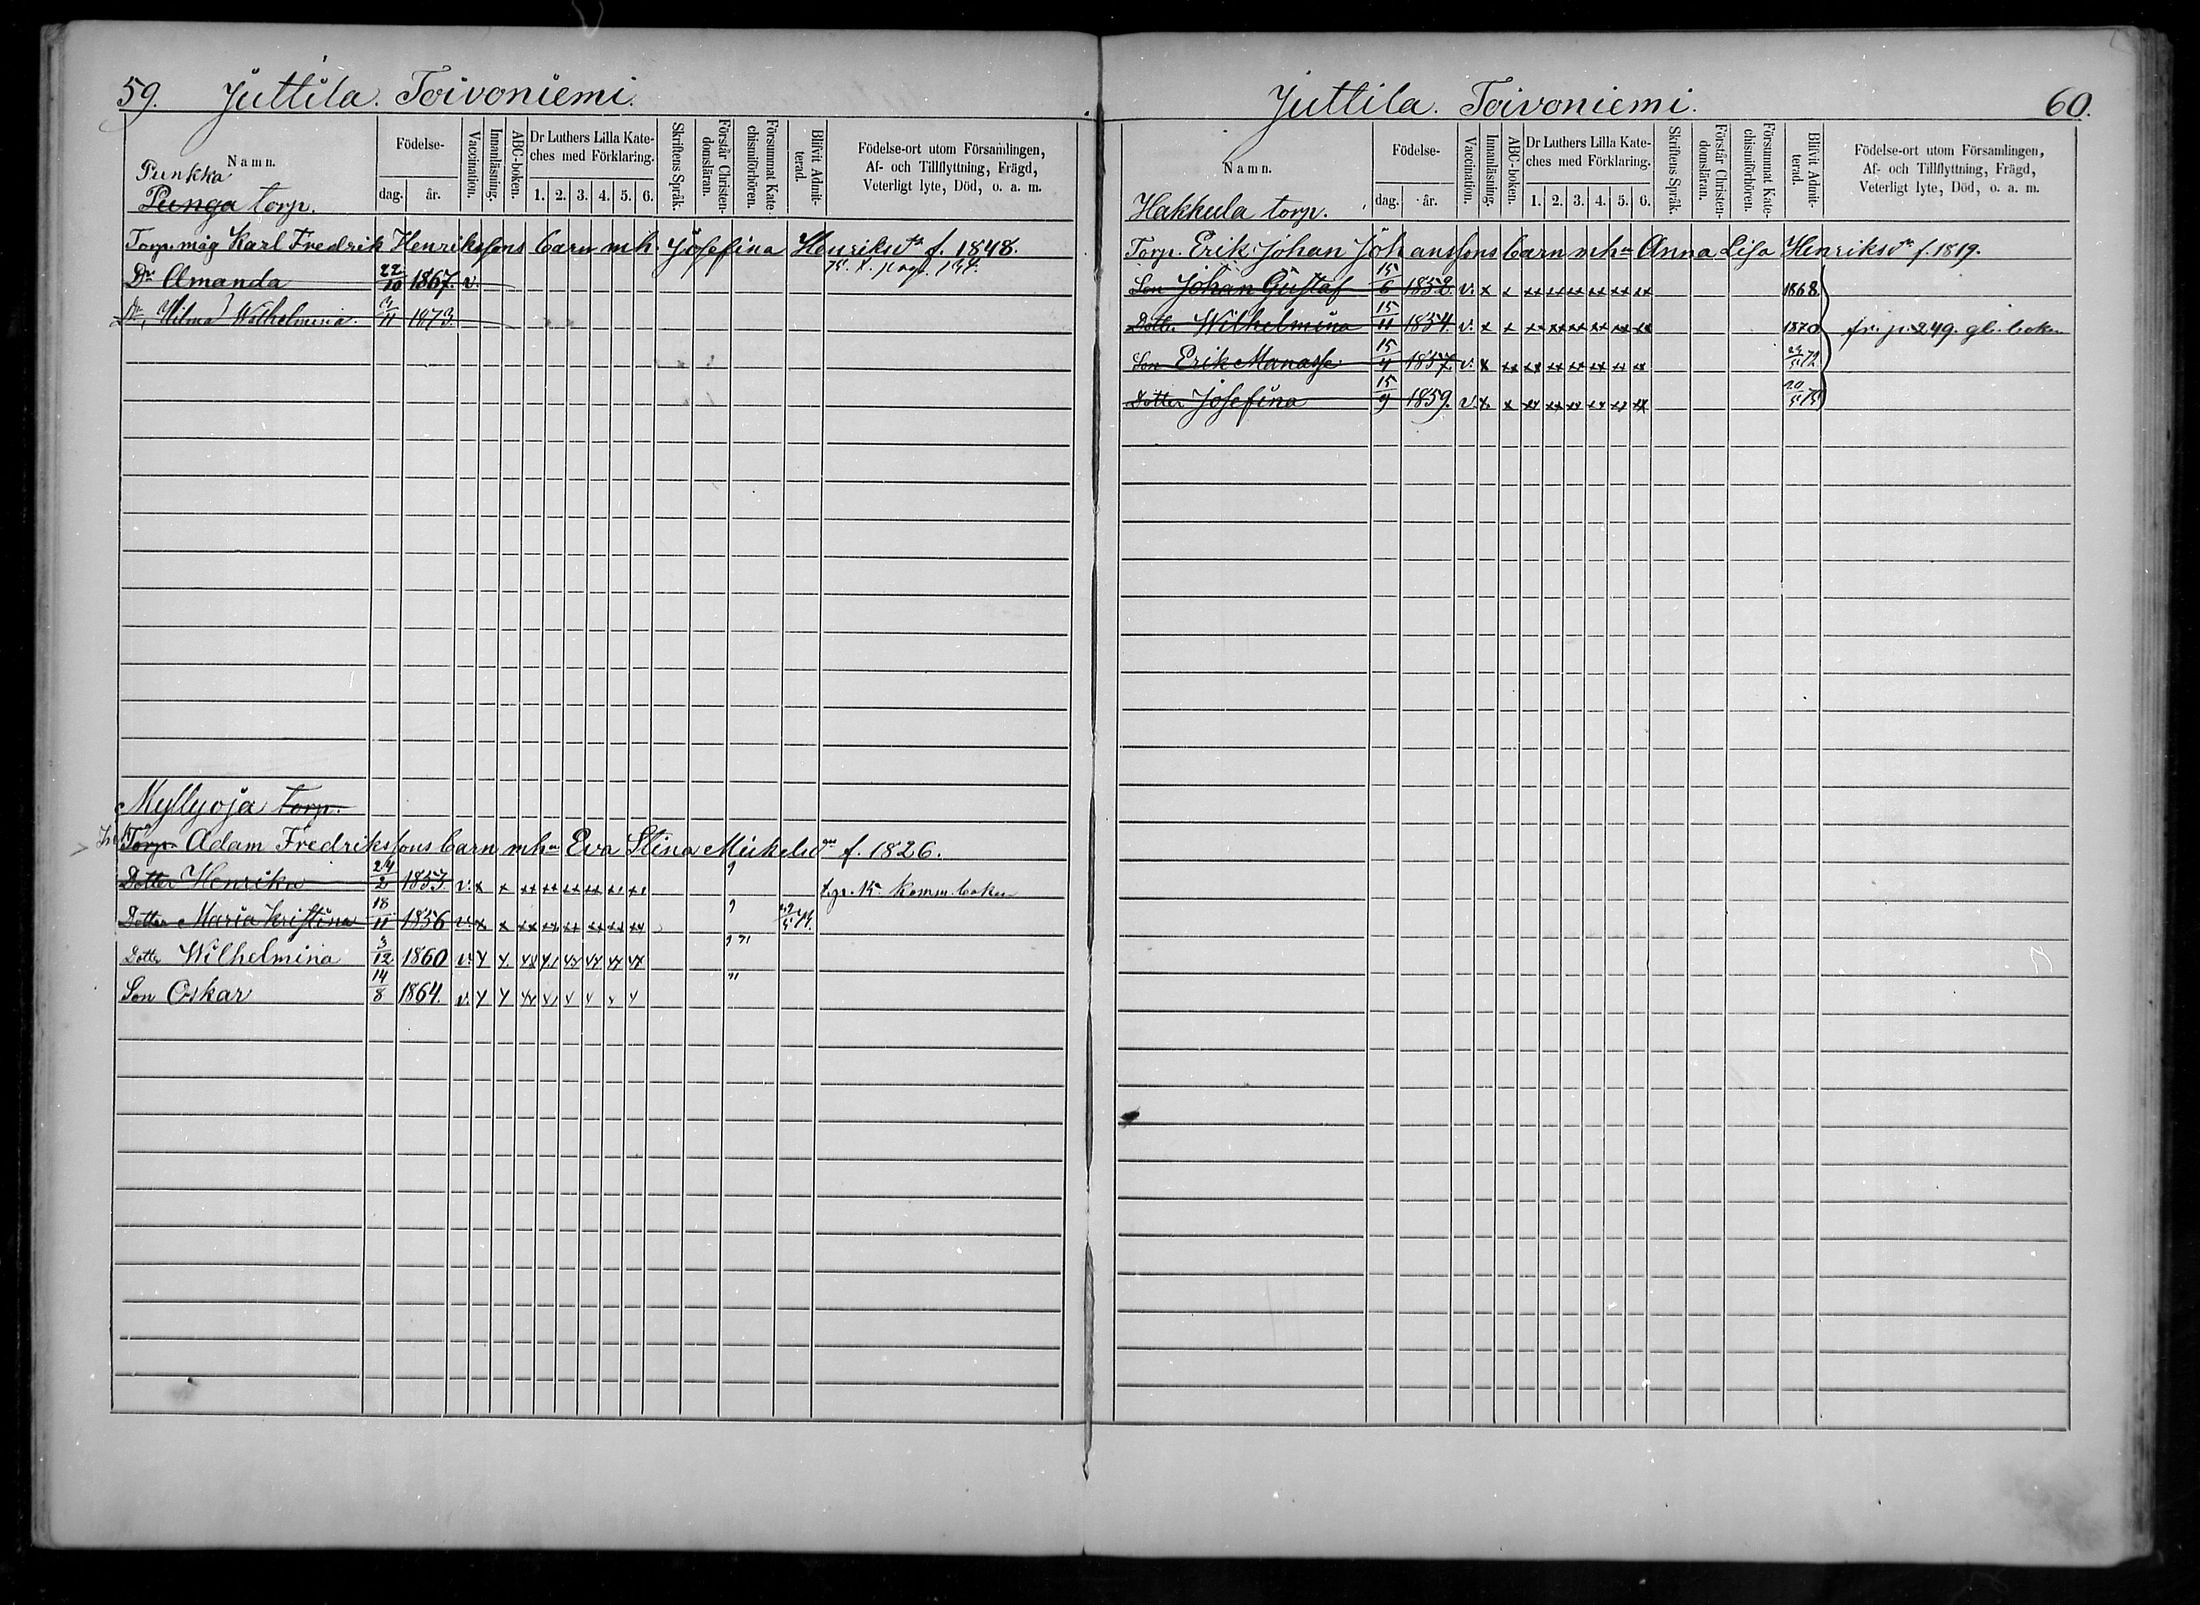 59. Juttila. Toivoniemi.
Namn.
Födelse-
dag. år.
Vaccination.
Innanläsning.
ABC-boken.
Dr Luthers Lilla Kate-
ches med Förklaring.
1. 2. 3. 4. 5. 6.
Skriftens Språk.
Förstår Christen-
domsläran.
Försummat Kate-
chismiförhören.
Blifvit Admit-
terad.
Födelse-ort utom Församlingen,
Af- och Tillflyttning, Frägd,
Veterligt lyte, Död, o. a. m.
Punkka
Punga torp.
Torp. måg Karl Fredrik Henrikssons barn mh Josefina Henriksdr f. 1848.
Dr Amanda 22/10 1867. v.
Dr, Hilma Wilhelmina. 3/11 1873.
Myllyoja torp.
Torp. Adam Fredrikssons barn mhu Eva Stina Mickelsdr f. 1826.
Dotter Henrika 24/2 1853. v. x x xx xx xx xx xx xx komm. boken
Dotter Maria Kristina 18/11 1856 v. x x xx xx xx xx xx xx
Dotter Wilhelmina 3/12 1860 v.
Son Oskar 14/8 1864. v.
Juttila. Toivoniemi. 60.
Namn.
Födelse-
dag. år.
Vaccination.
Innanläsning.
ABC-boken.
Dr Luthers Lilla Kate-
ches med Förklaring.
1. 2. 3. 4. 5. 6.
Skriftens Språk.
Förstår Christen-
domsläran.
Försummat Kate-
chismiförhören.
Blifvit Admit-
terad.
Födelse-ort utom Församlingen,
Af- och Tillflyttning, Frägd,
Veterligt lyte, Död, o. a. m.
Hakkula torp.
Torp. Erik Johan Johanssons barn mhu Anna Lisa Henriksdr f. 1819.
Son Johan Gustaf 15/6 1852. v. x x xx xx xx xx xx xx 1868
Dotter Wilhelmina 15/11 1854. v. x x xx xx xx xx xx xx 1870 fr. p. 249. gl. boken
Son Erik Manasse 15/4 1857. v. x xx xx xx xx xx xx xx
Dotter Josefina 15/9 1859. v. x x xx xx xx xx xx xx